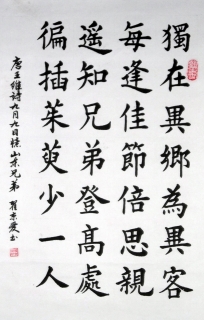 獨在異鄉為異客
每逢佳節倍思親
遥知兄弟登高處
徧插茱萸少一人
唐王維詩九月九日憶山東兄弟 瞿京愛書